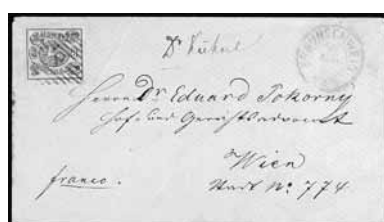 Dr
Herrn Dr Eduard Tokorny
Hof- und Gerichtsadvocat
Wien
Stadt No 774.
franco.